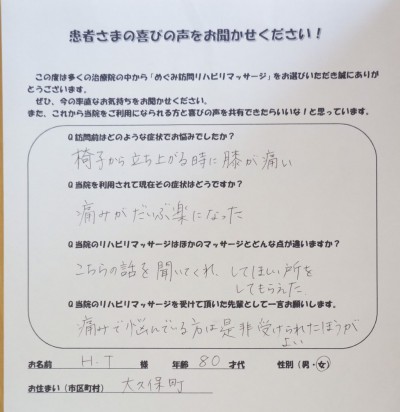 患者さまの喜びの声をお聞かせください！
この度は多くの治療院の中から「めぐみ訪問リハビリマッサージ」をお選びいただき誠にありが
とうございます。
ぜひ、今の率直なお気持ちをお聞かせください。
また、これから当院をご利用になられる方と喜びの声を共有できたらいいな！と思っています。
Q訪問前はどのような症状でお悩みでしたか？
椅子から立ち上がる時に膝が痛い
Q当院を利用されて現在その症状はどうですか？
痛みがだいぶ楽になった
Q当院のリハビリマッサージはほかのマッサージとどんな点が違いますか？
こちらの話を聞いてくれ、してほしい所を
してもらえた
Q当院のリハビリマッサージを受けて頂いた先輩として一言お願いします。
痛みで悩んでいる方は是非受けられたほうが
よい
お名前 H.T 様 年齢 80 才代 性別（男・女）
お住まい（市区町村） 大久保町